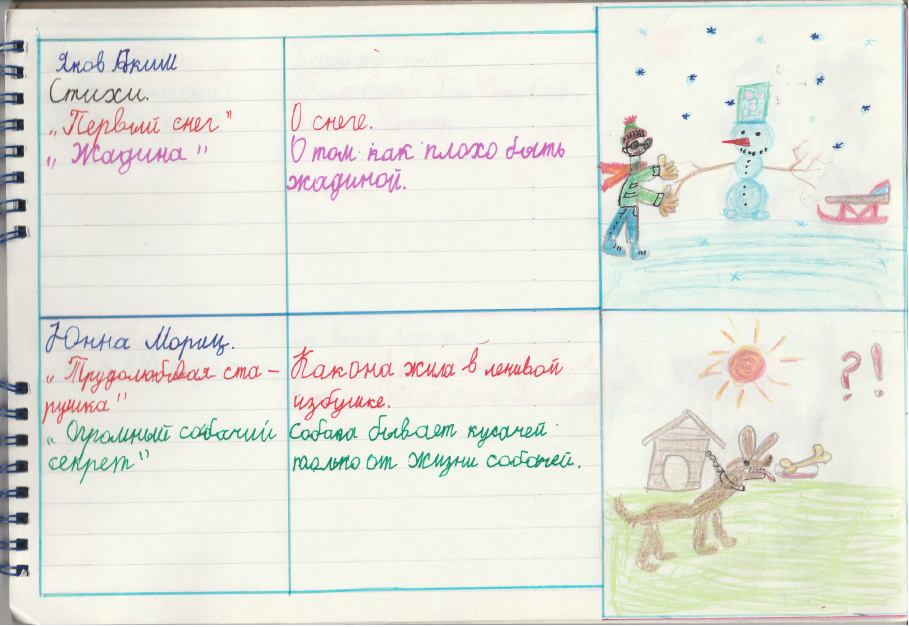 Яков Аким
Стихи.
„Первый снег"
„Жадина"
О снеге.
О том как плохо быть
жадиной.
Юнна Мориц.
„Трудолюбивая ста-
рушка"
„Огромный собачий
секрет"
Как она жила в ленивой
избушке.
Собака бывает кусачей
только от жизни собачей.
?!